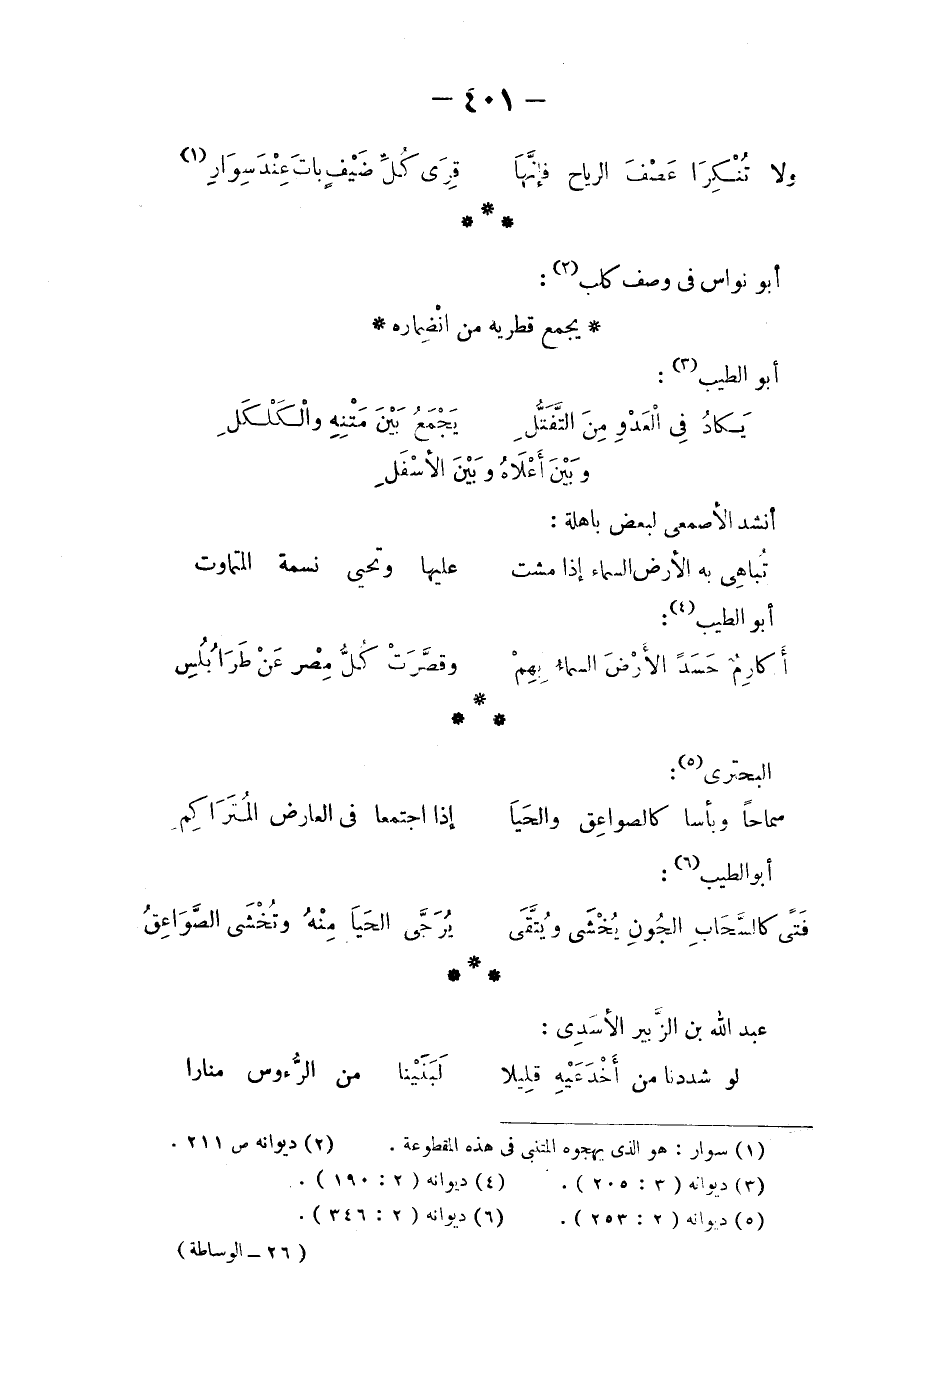 — ٤٠١ —
ولا تُنْكِرَا عَصْفَ الرياح فإنَّهَا قِرَى كُلِّ ضَيْفٍ باتَ عِنْدَ سِوَارِ (١)
* * *
أبو نواس فى وصف كلب (٢) :
* يجمع قطريه من انْضِماره *
أبو الطيب (٣) :
يَكادُ فِى الْعَدْوِ مِنَ التَّفَتُّلِ يَجْمَعُ بَيْنَ مَتْنِهِ والْكَلْكَلِ
وَبَيْنَ أَعْلَاهُ وَبَيْنَ الأَسْفَلِ
أنشد الأصمعى لبعض باهلة :
تُباهِى به الأرض السماء إذا مشت عليها وتحيى نسمة المتماوت
أبو الطيب (٤) :
أَكارِمٌ حَسَدَ الأَرْضَ السماءُ بِهِمْ وقصَّرَتْ كُلُّ مِصْر عَنْ طَرَابُلُسِ
* * *
البحترى (٥) :
سماحاً وبأسا كالصواعِق والحَيَا إذا اجتمعا فى العارض المُتَرَاكِمِ
أبو الطيب (٦) :
فَتًى كالسَّحَابِ الجُونِ يُخْشَى ويُتَّقَى يُرَجَّى الحَيَا مِنْهُ وتُخْشَى الصَّوَاعِقُ
* * *
عبد الله بن الزَّبير الأسَدِى :
لو شددنا من أَخْدَعَيْهِ قليلا لَبَنَيْنا من الرُّءوس منارا
(١) سوار : هو الذى يهجوه المتنبى فى هذه المقطوعة . (٢) ديوانه ص ٢١١ .
(٣) ديوانه ( ٣ : ٢٠٥ ) . (٤) ديوانه ( ٢ : ١٩٠ ) .
(٥) ديوانه ( ٢ : ٢٥٣ ) . (٦) ديوانه ( ٢ : ٣٤٦ ) .
( ٢٦ ــ الوساطة )